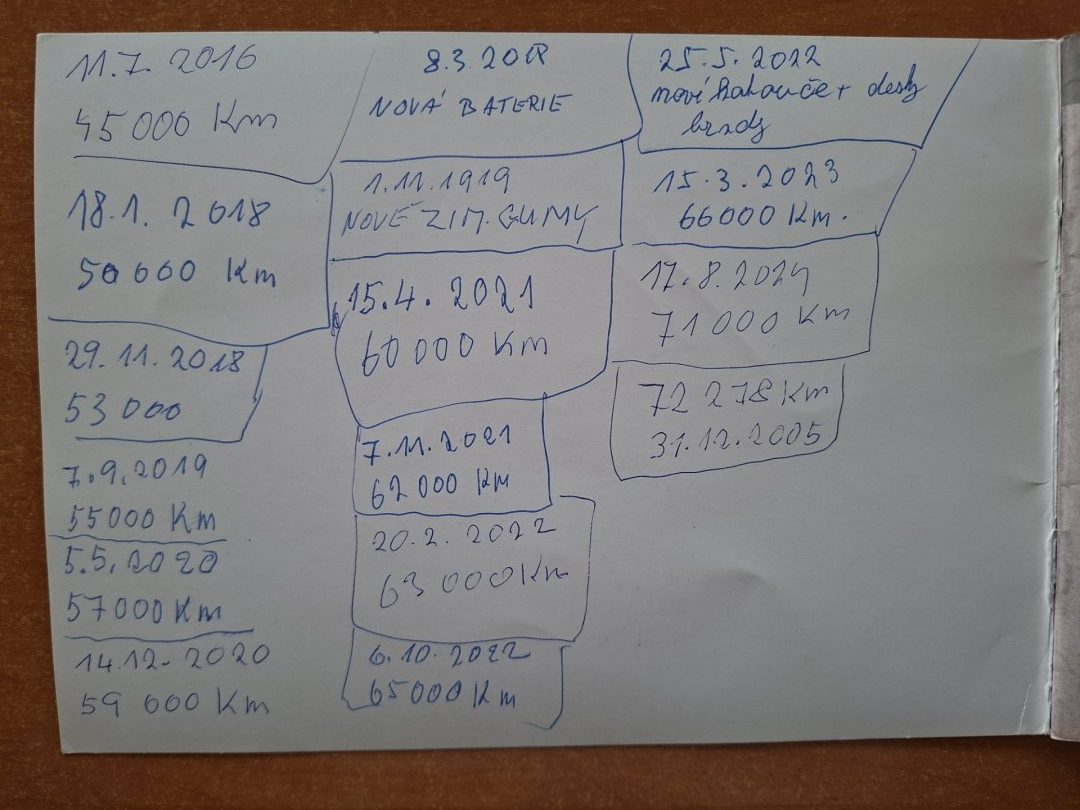 11.7. 2016
45 000 Km
18.1. 2018
50 000 Km
29.11.2018
53 000
7.9.2019
55000 Km
5.5.2020
57000 Km
14.12. 2020
59 000 Km
8.3.2018
NOVÁ BATERIE
1.11.1919
NOVÉ ZIM. GUMY
15.4. 2021
60 000 Km
7.11.2021
62 000 Km
20.2. 2022
63 000 Km
6.10.2022
65000 Km
25.5.2022
nové kotouče + desky
brzdy
15.3.2023
66000 Km.
17.8.2024
71000 Km
72 278 Km
31.12.2005